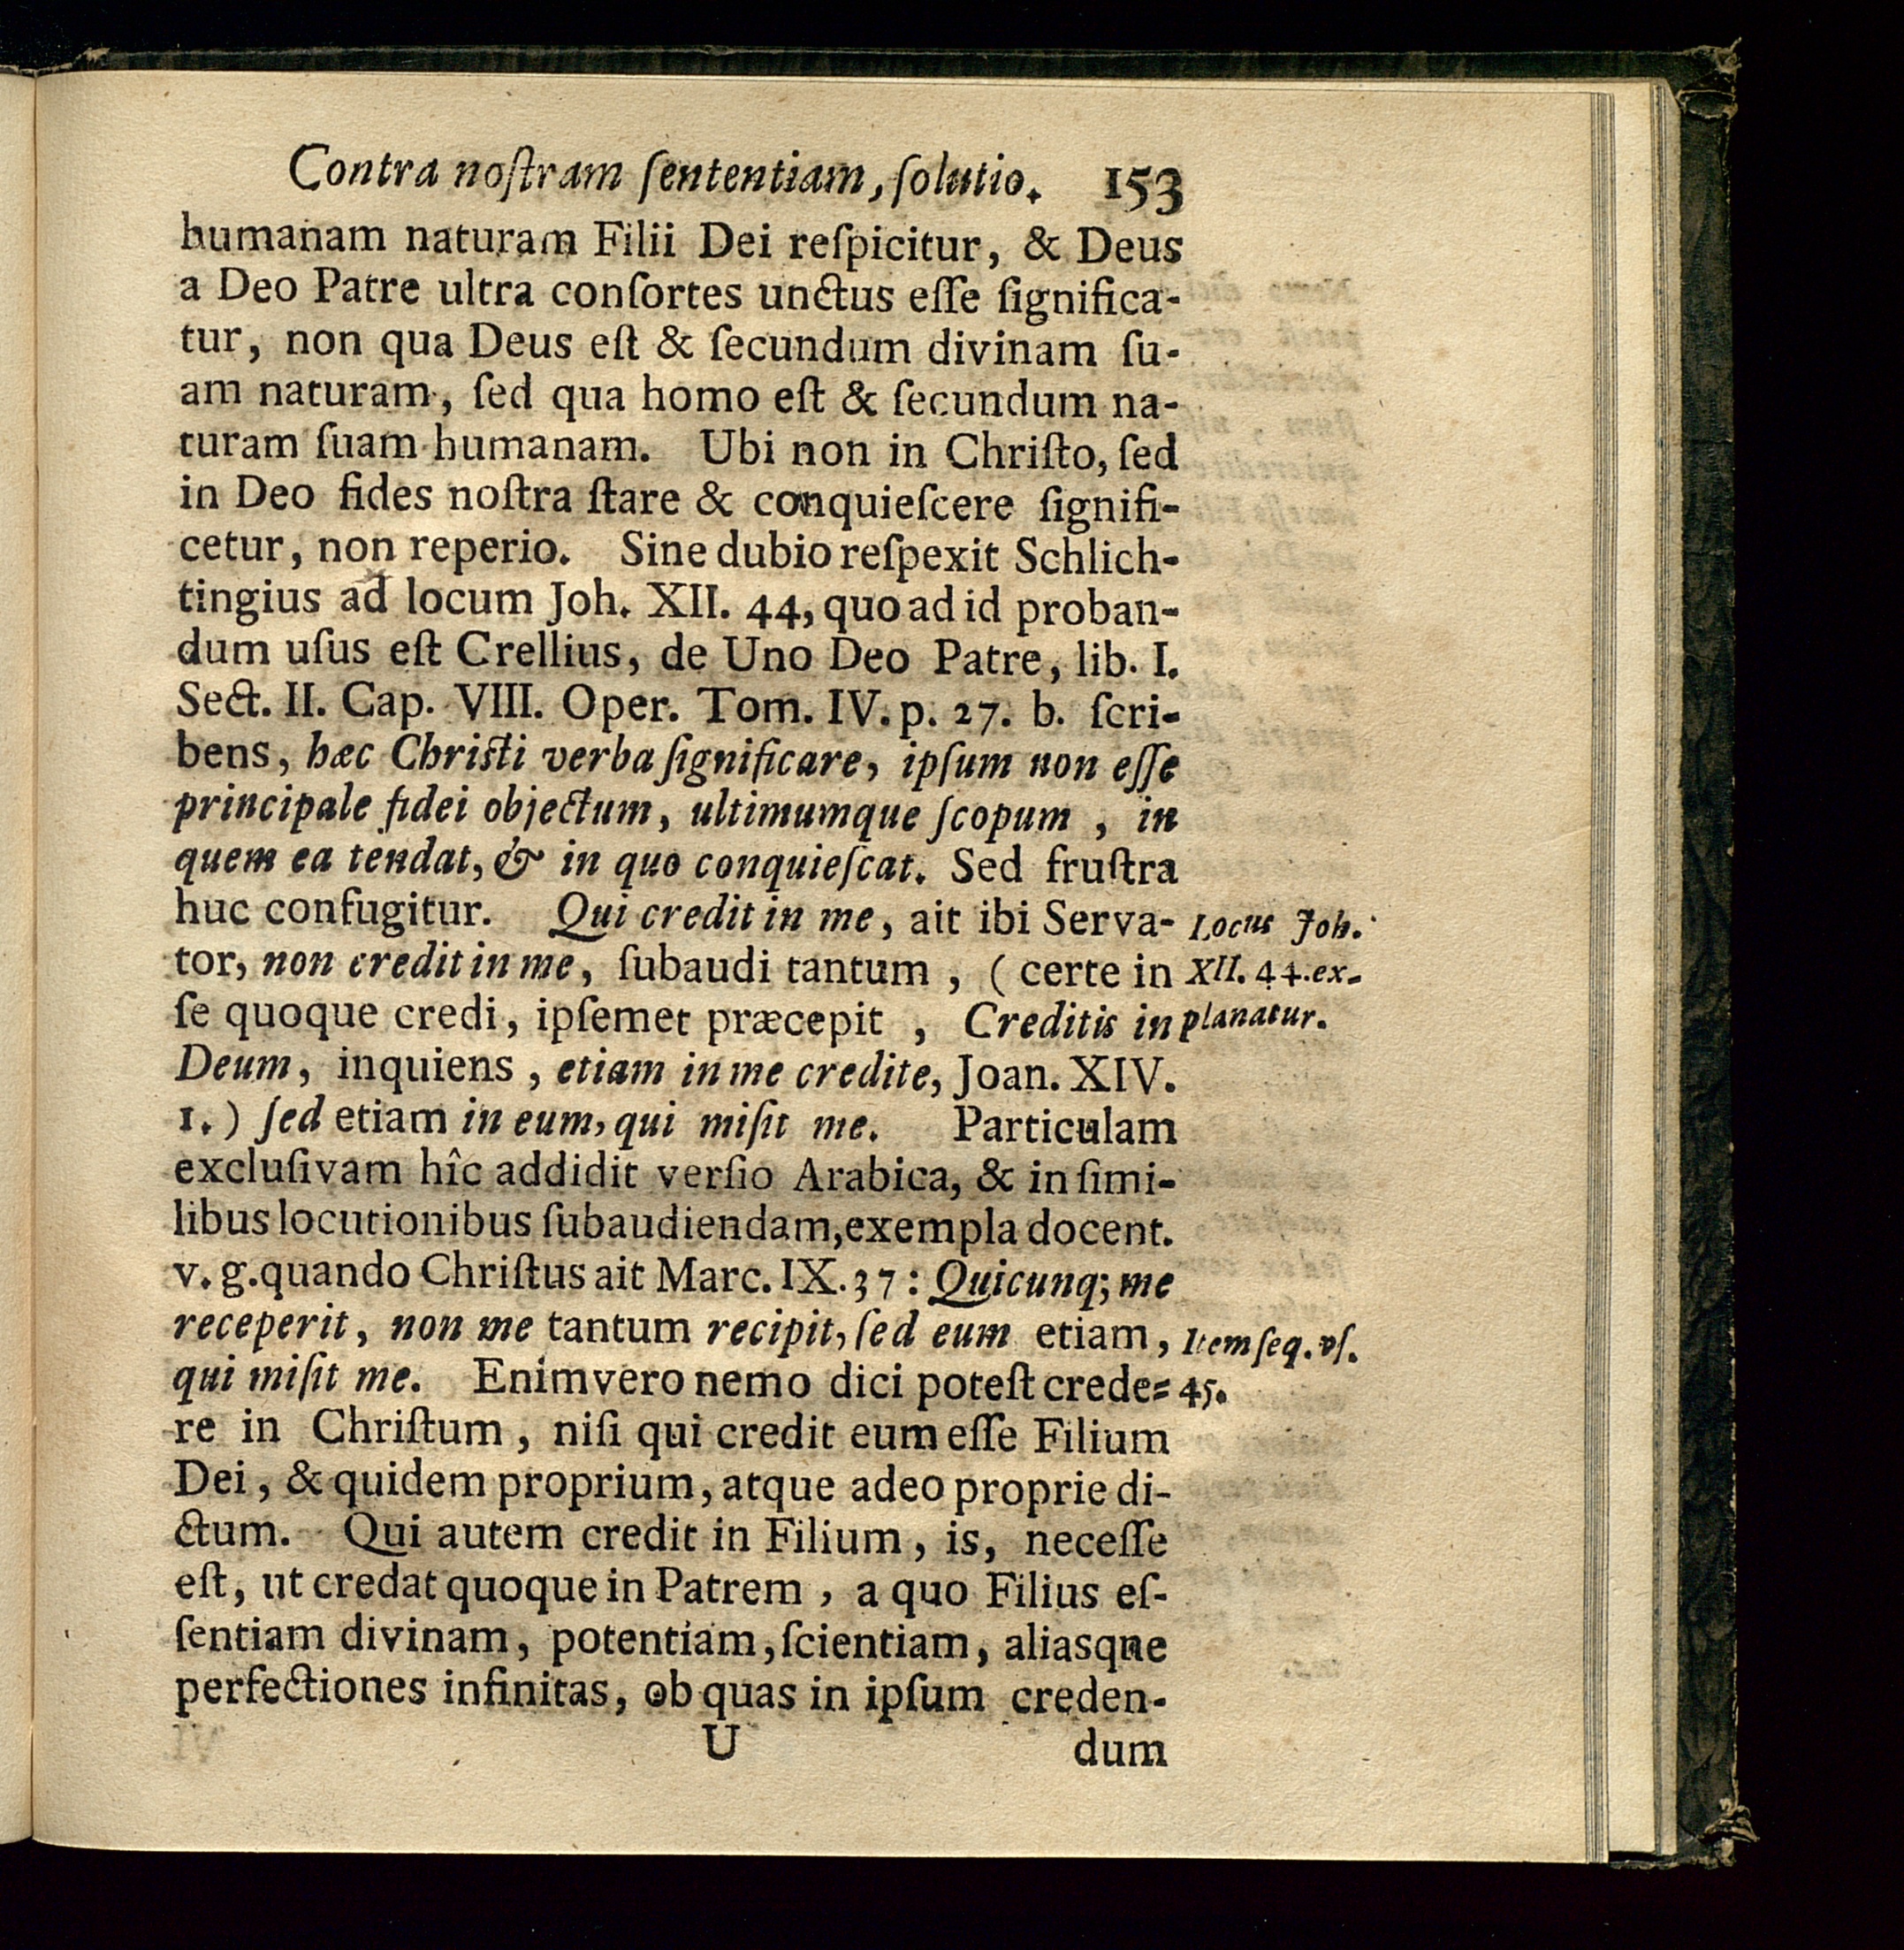 Contra noſtram ſententiam, ſolutio. 153
humanam naturam Filii Dei reſpicitur, & Deus
a Deo Patre ultra conſortes unctus eſſe ſignifica-
tur, non qua Deus eſt & ſecundum divinam ſu-
am naturam, ſed qua homo eſt & ſecundum na-
turam ſuam humanam. Ubi non in Chriſto, ſed
in Deo fides noſtra ſtare & conquieſcere ſignifi-
cetur, non reperio. Sine dubio reſpexit Schlich-
tingius ad locum Joh. XII. 44, quo ad id proban-
dum uſus eſt Crellius, de Uno Deo Patre, lib. I.
Sect. II. Cap. VIII. Oper. Tom. IV. p. 27. b. ſcri-
bens, hæc Chriſti verba ſignificare, ipſum non eſſe
principale fidei objectum, ultimumque ſcopum, in
quem ea tendat, & in quo conquieſcat. Sed fruſtra
huc confugitur. Qui credit in me, ait ibi Serva-
tor, non credit in me, ſubaudi tantum, (certe in
ſe quoque credi, ipſemet præcepit, Creditis in
Deum, inquiens, etiam in me credite, Joan. XIV.
1.) ſed etiam in eum, qui miſit me. Particulam
excluſivam hîc addidit verſio Arabica, & in ſimi-
libus locutionibus ſubaudiendam, exempla docent.
v. g. quando Chriſtus ait Marc. IX. 37: Quicunq; me
receperit, non me tantum recipit, ſed eum etiam,
qui miſit me. Enimvero nemo dici poteſt crede-
re in Chriſtum, niſi qui credit eum eſſe Filium
Dei, & quidem proprium, atque adeo proprie di-
ctum. Qui autem credit in Filium, is, neceſſe
eſt, ut credat quoque in Patrem, a quo Filius eſ-
ſentiam divinam, potentiam, ſcientiam, aliasque
perfectiones infinitas, ob quas in ipſum creden-
U dum
Locus Joh.
XII. 44. ex-
planatur.
Item ſeq. vſ.
45.